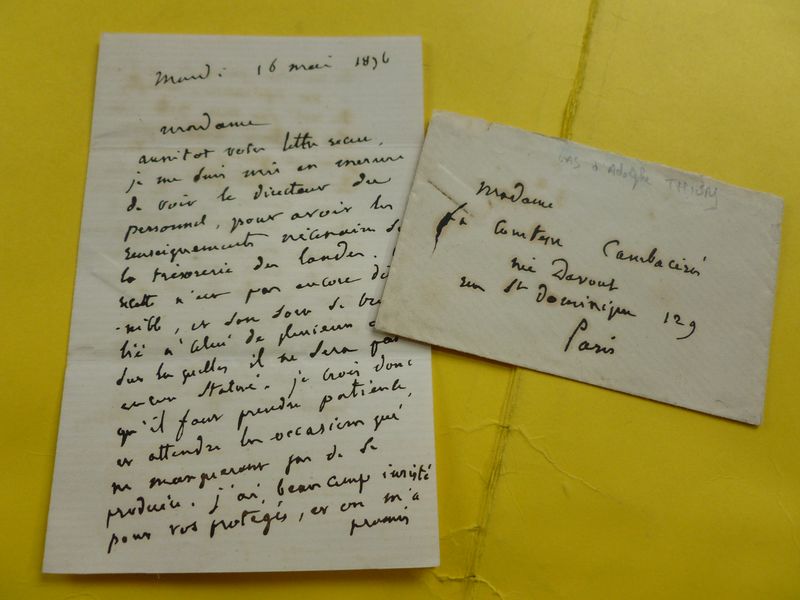 Mardi 16 mai 1876
Madame
aussitot votre lettre reçue,
je me suis mis en mesure
de voir le directeur du
personnel, pour avoir les
renseignements nécessaires
la trésorerie des landes.
n'est pas encore
et son
lié à celui de plusieurs
sur lesquelles il ne sera pas
encore statué. je crois donc
qu'il faut prendre patience,
et attendre les occasions qui
ne manqueront pas de se
produire. j'ai beaucoup insisté
pour vos protégés, et on m'a
promis
LAS d'Adolphe THIERS
Madame
la Comtesse Cambacérès
née Davout
rue St Dominique 129
Paris